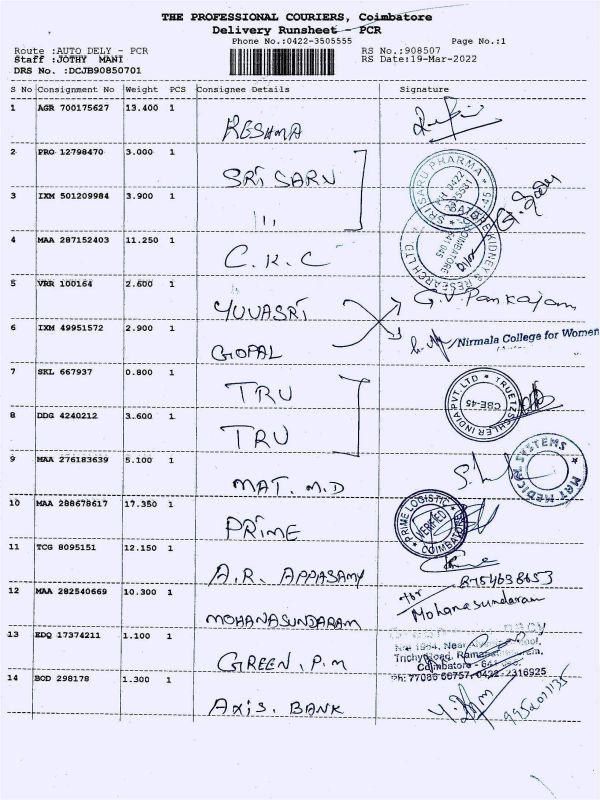 THE PROFESSIONAL COURIERS, Coimbatore
Delivery Runsheet - PCR
Phone No.:0422-3505555 Page No.:1
Route :AUTO DELY - PCR RS No.:908507
Staff :JOTHY MANI RS Date:19-Mar-2022
DRS No. :DCJB90850701
S No Consignment No Weight PCS Consignee Details Signature
1 AGR 700175627 13.400 1
RESHMA
2 PRO 12798470 3.000 1
SRI SARU
SRI SARU PHARMA
3 IXM 501209984 3.900 1
,,
4 MAA 287152403 11.250 1
C.K.C
KIDNEY & RESEARCH
COIMBATORE
641 045
5 VRR 100164 2.600 1
YUVASRI
G.V. Pankajam
6 IXM 49951572 2.900 1
GOPAL
Nirmala College for Women
7 SKL 667937 0.800 1
TRU
TRUETZSCHLER INDIA PVT. LTD
CBE-45
8 DDG 4240212 3.600 1
TRU
9 MAA 276183639 5.100 1
MAT. M.D
MAT MEDICAL SYSTEMS
10 MAA 288678617 17.350 1
PRIME
PRIME LOGISTIC
VERIFIED
COIMBATORE
11 TCG 8095151 12.150 1
A.R. APPASAMY
8754638653
12 MAA 282540669 10.300 1
MOHANASUNDARAM
for
Mohanasundaram
13 EDQ 17374211 1.100 1
GREEN. P.M
No 1954, Near
Trichy Road, Ramanathapuram,
Coimbatore - 641
Ph: 77086 66757, 0422-2316925
14 BOD 298178 1.300 1
AXIS. BANK